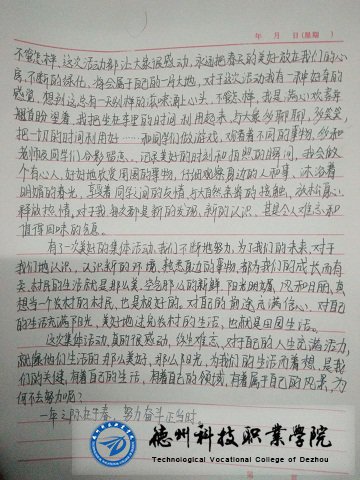 年 月 日(星期 )
不管怎样、这次活动都让大家很感动,永远把春天的美好放在我们的心
房,不断的绿化,将会属于自己的一片大地,对于这次活动我有一种好奇的
感觉,想到这总有一天别样的滋味涌上心头,不管怎样,我是满心欢喜并
翘首盼望着,我把坐在车里的时间利用起来,与大家多聊聊,多笑笑,
把一切的时间利用好……和同学们做游戏,观看着不同的事物,多和
老师及同学们合影留念。记录美好的时刻和拍照的瞬间,我会做
个有心人,好好地欣赏周围的事物,仔细观察身边的人和事,沐浴着
明媚的春光,享受着同学之间的友情,与大自然亲密的接触,放松真心,
释放热情,对于我每次都是新的发现,新的认识,甚是令人难忘和
值得回味的气息。
有了一次美好的集体活动,我们不断地努力,为了我们的未来,对于
我们地认识,认识新的环境,熟悉身边的事物,都为我们的成长而有
关,村民的生活就是那么美,空气那么的新鲜,阳光明媚,风和日丽,真
想当个农村的村民,也是极好的,对自己的前途充满信心,对自己
的生活充满阳光,美好地过完农村的生活,也就是田园生活。
这次集体活动,真的很感动,终生难忘,对于自己的人生充满活力,
就像他们生活的那么美好,那么阳光,为我们的生活而着想,是我
们的关键,有着自己的生活,有着自己的领域,有着属于自己的风景,为
何不去努力呢?
一年之际在于春,努力奋斗正当时。
德州科技职业学院
Technological Vocational College of Dezhou